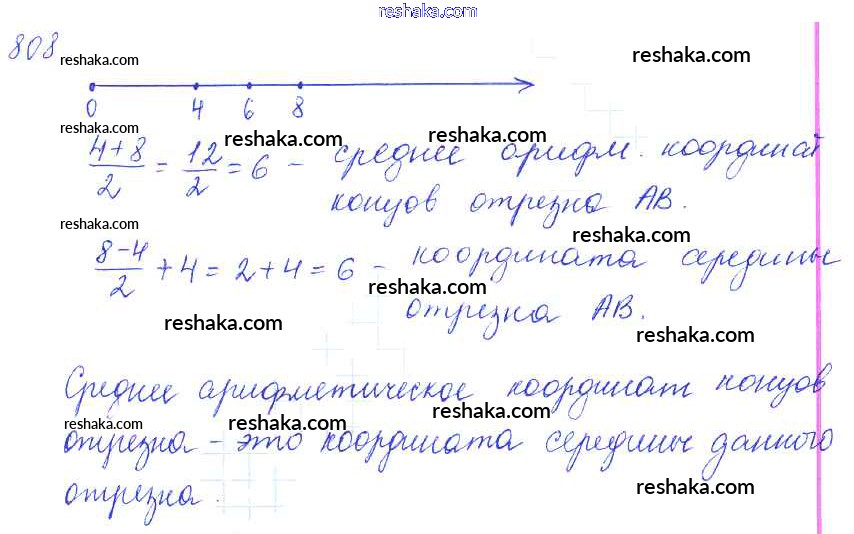 reshaka.com
808 reshaka.com reshaka.com
0 4 6 8
reshaka.com reshaka.com reshaka.com
(4+8)/2 = 12/2 = 6 – среднее арифм. координат
концов отрезка AB.
reshaka.com reshaka.com
(8–4)/2 + 4 = 2 + 4 = 6 – координата середины
reshaka.com
отрезка AB.
reshaka.com reshaka.com
Среднее арифметическое координат концов
reshaka.com reshaka.com reshaka.com
отрезка – это координата середины данного
отрезка.
reshaka.com reshaka.com